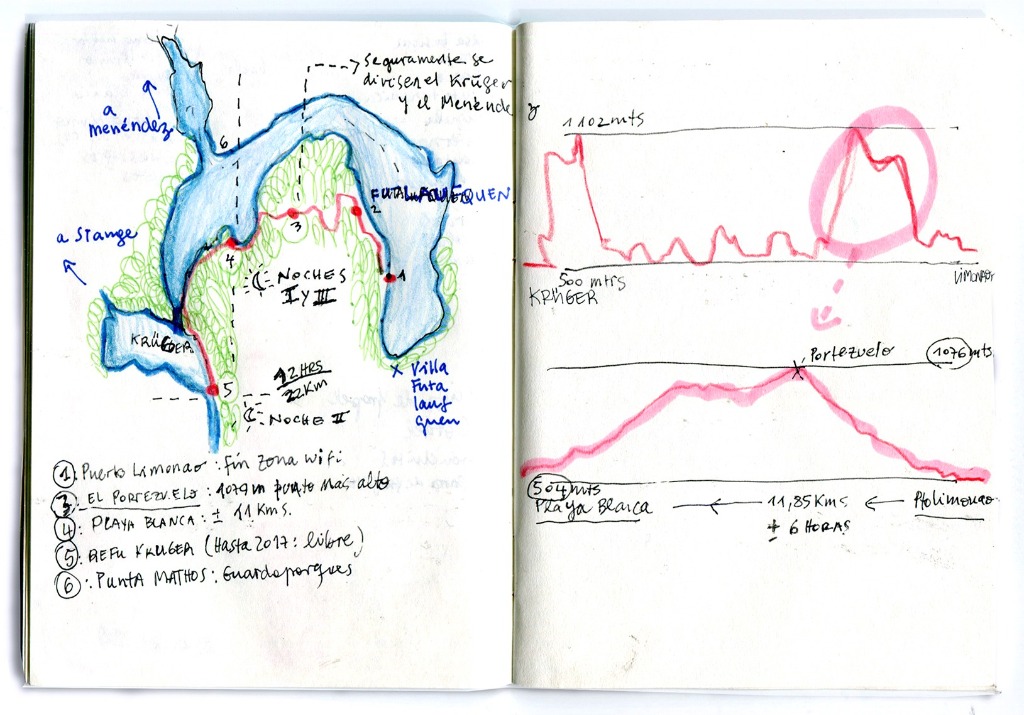 seguramente se
divisen el Krüger
y el Menéndez
a
menéndez
6
FUTALAUFQUEN
2
a Stange
3
4
NOCHES
I y III
1
KRÜGER
5
12 HRS
22 Km
NOCHE II
x Villa
Futa
lauf
quen
① Puerto Limonao: fin zona wifi
③ EL PORTEZUELO: 1079 m punto más alto
④ PLAYA BLANCA: ± 11 Kms.
⑤ REFU KRUGER (Hasta 2017: libre)
⑥ : PUNTA MATHOS: Guardaparques
1102 mts
500 mtrs
KRÜGER
LIMONAO
Portezuelo 1076 mts
504 mts
Playa Blanca ← 11,85 Kms ← Pto limonao
± 6 HORAS